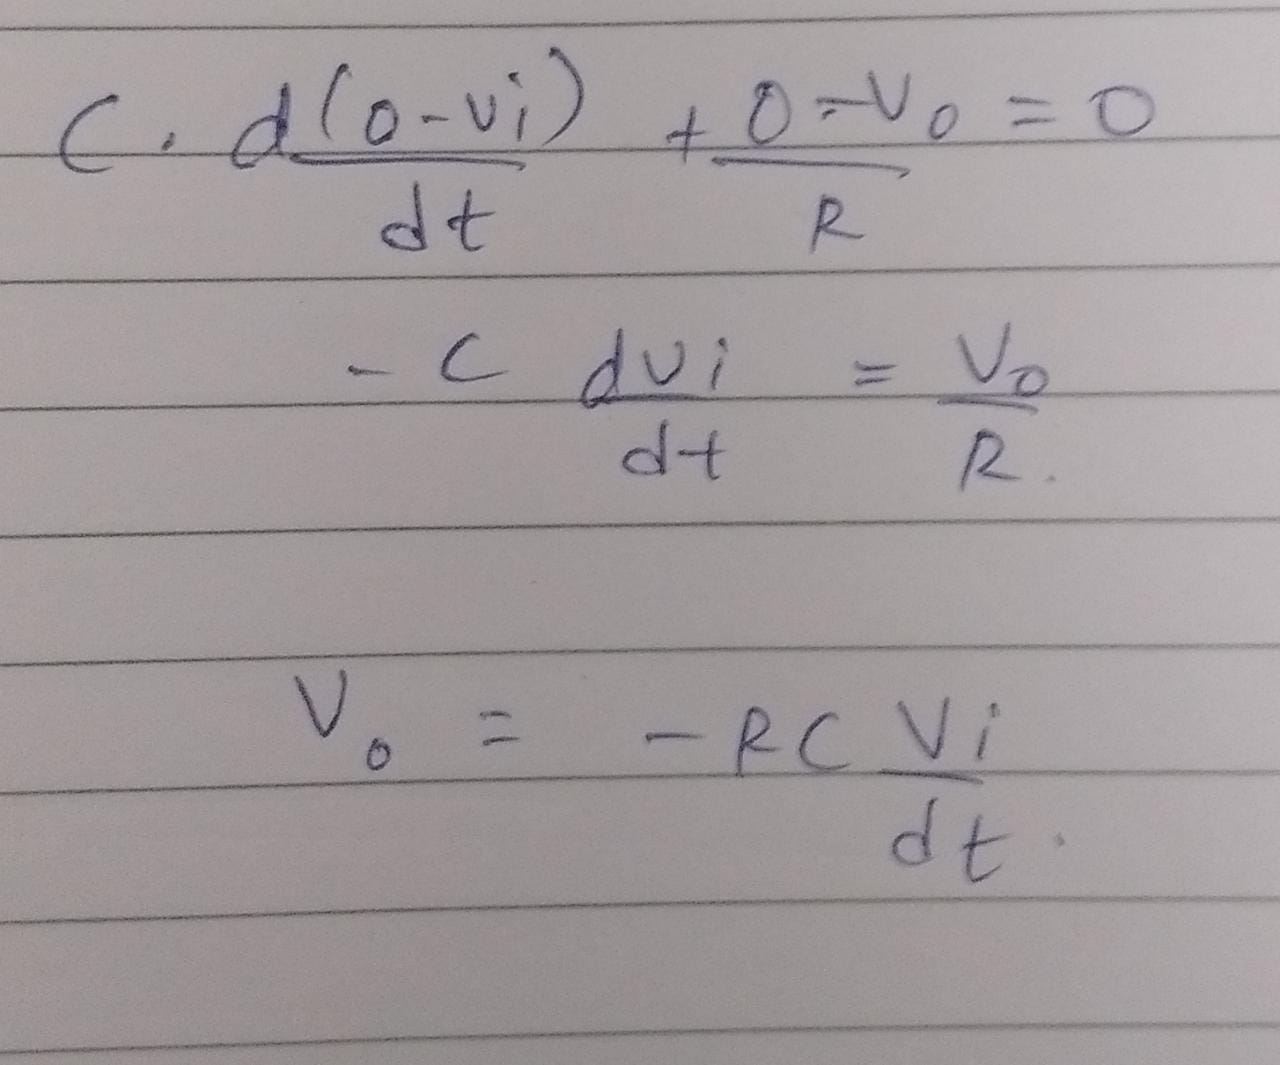 C. d(0-vi)/dt + 0-V₀/R = 0
-C dvi/dt = V₀/R.
V₀ = -RC Vi/dt.